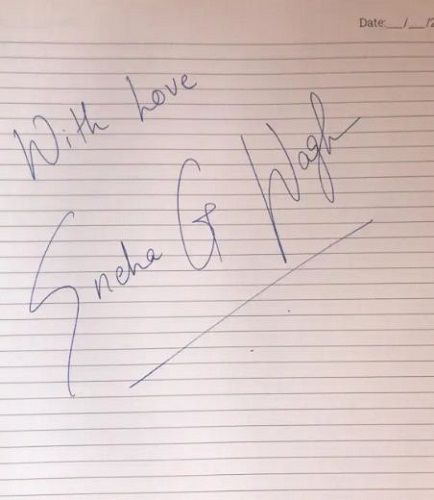 Date:__/__/2
With Love
Sneha G Wagh